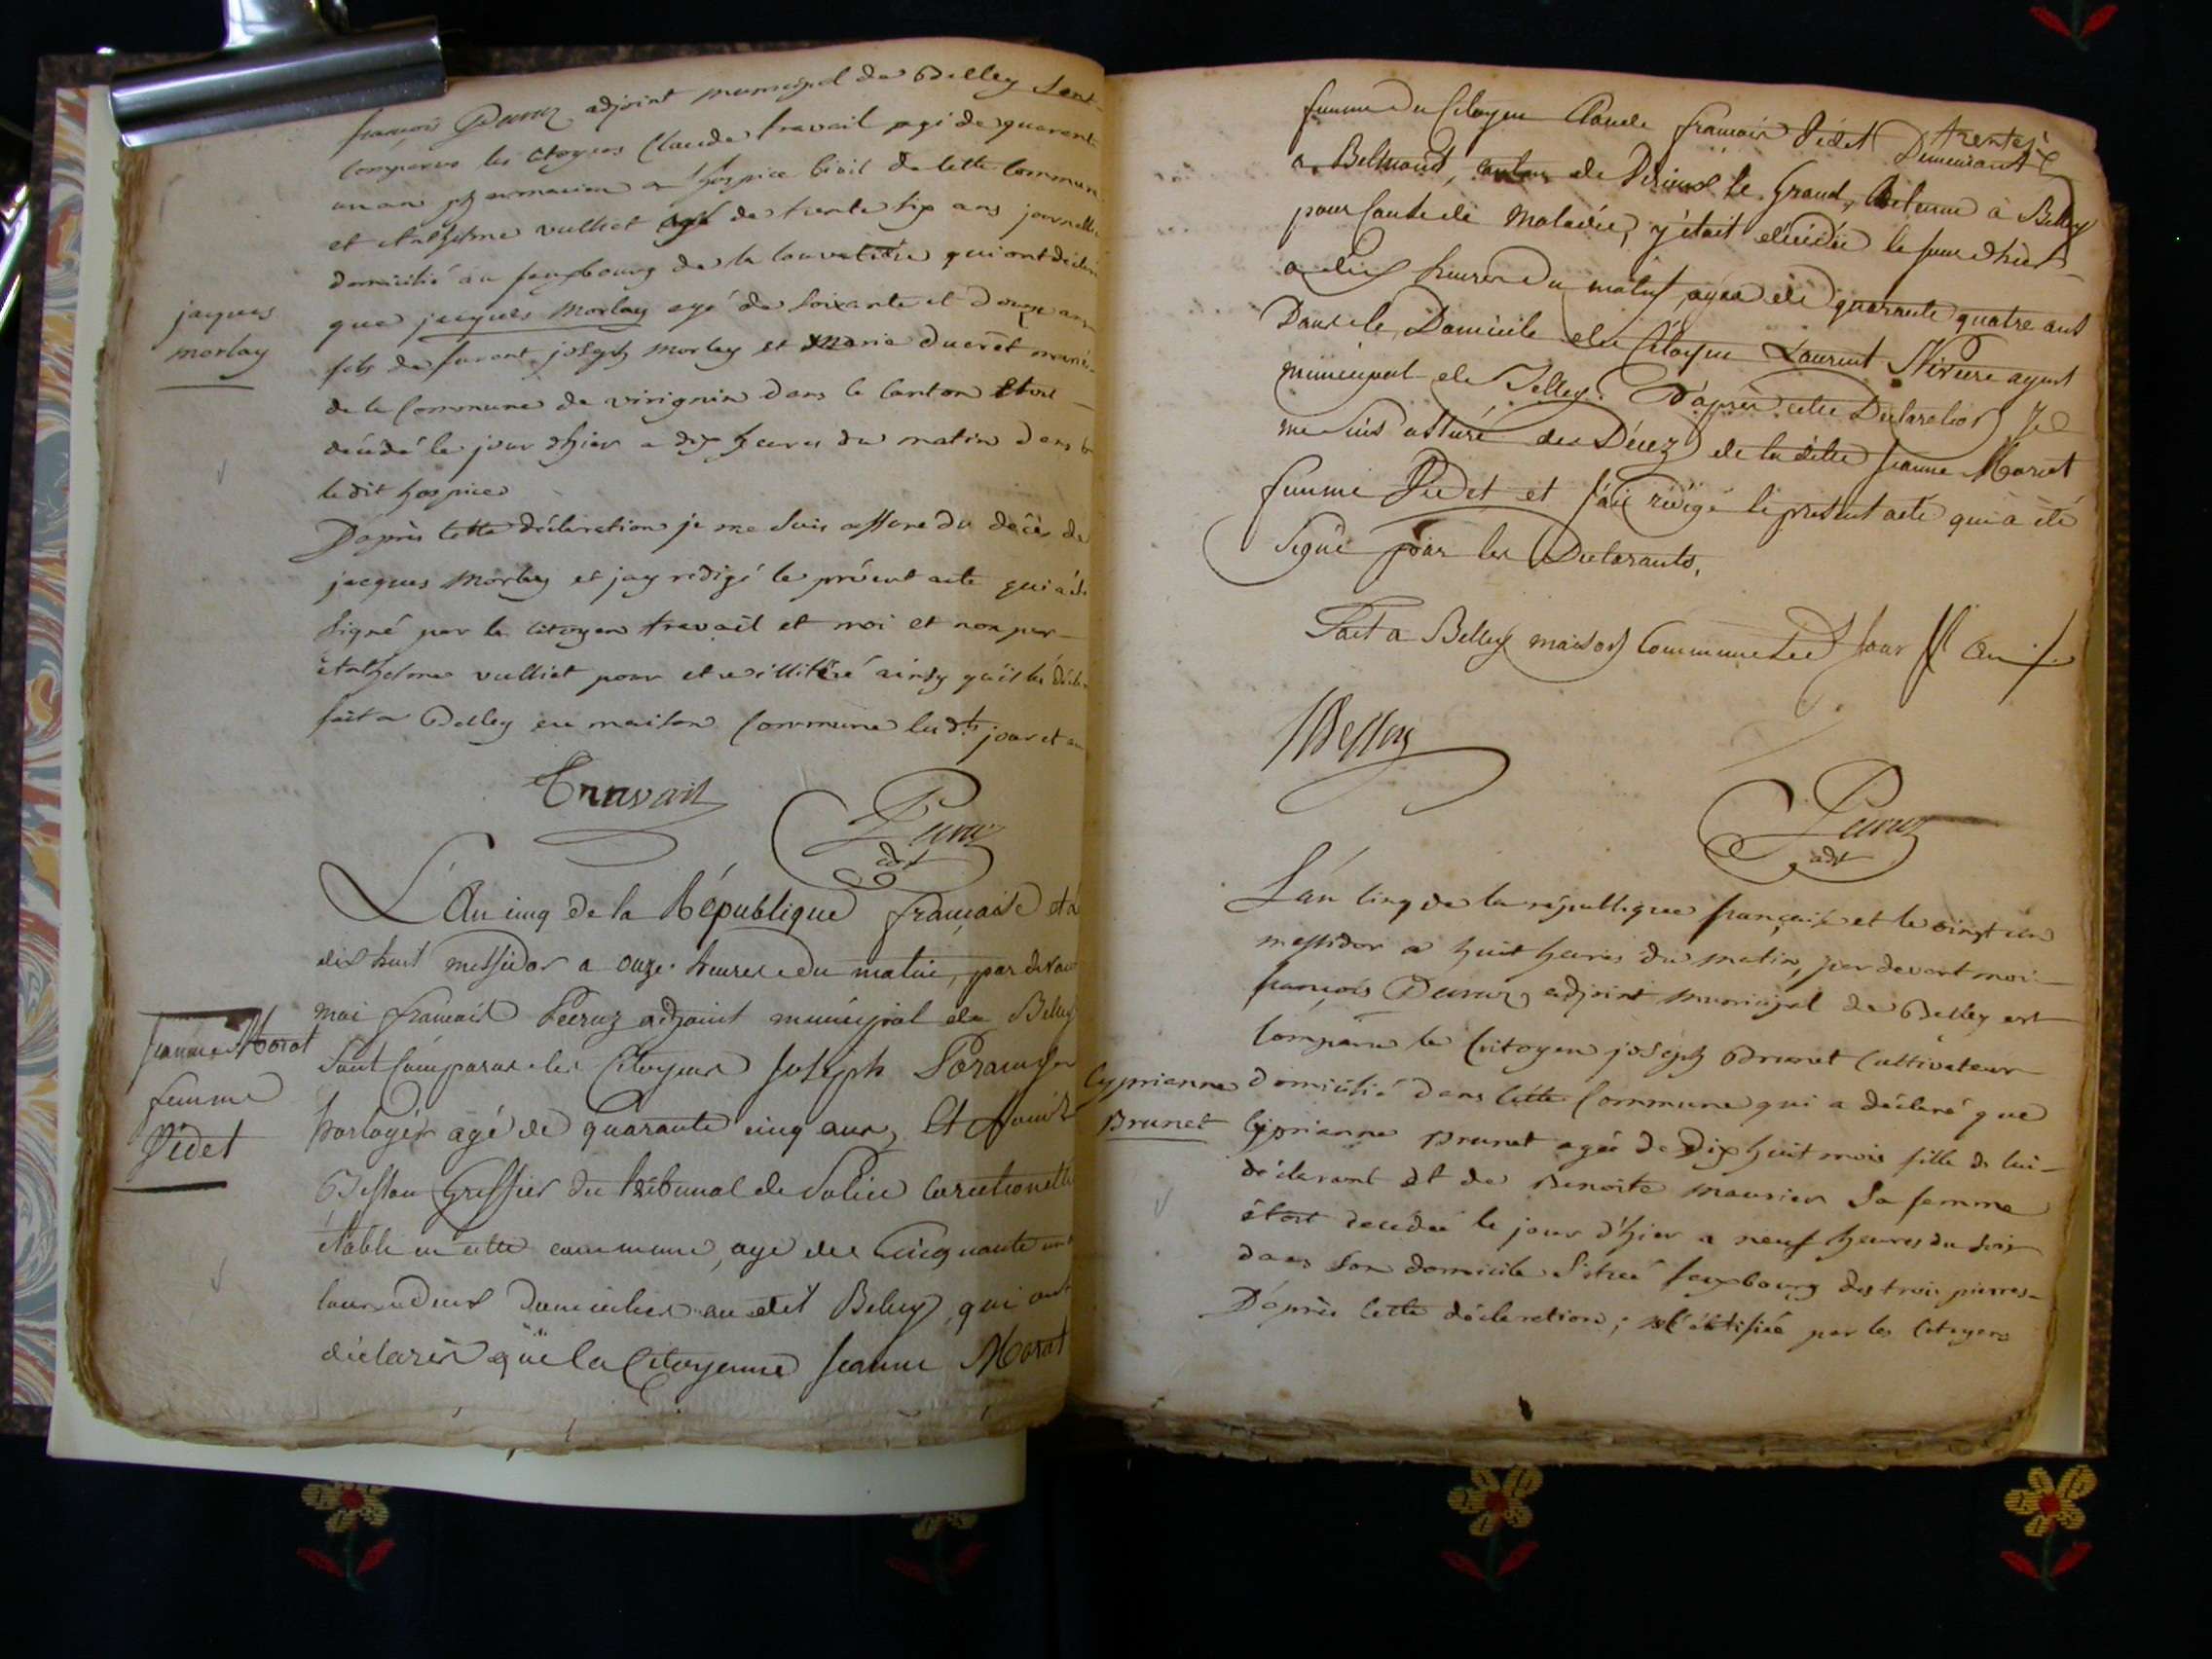 françois Peruz adjoint municipal de Belley sont
comparus les citoyens Claude travail agé de quarente
un an pharmacien a l'hospice Civil de cette Commune
et Anthelme vulliet agé de trente six ans journallier
domicilié au fauxbourg de la louvatière qui ont déclaré
que jacques morlay agé de soixante et douze ans
fils de furent joseph morlay et marie ducret mariés
de la Commune de virignin dans le canton
décédé le jour d'hier a dix heures du matin dans le
le dit hospice
D'après cette déclaration je me suis assuré du décès de
jacques morlay et jay rédigé le présent acte qui a été
signé par le citoyen travail et moi et non par
Anthelme vulliet pour etre illitéré ainsy qu'il l'a déclaré
fait a Belley en maison Commune lesdts jour et an
jacques
morlay
Travail
Peruz
adjt
L'An cinq de la République française et le
dix huit messidor a onze heures du matin, par devant
moi françois Peruz adjoint municipal de Belley
Sont Comparus les Citoyens Joseph
horloger agé de quarante cinq ans, Et
Besson Greffier du tribunal de Police Corectionelle
établi en cette commune, agé de Cinquante un
tous deux domiciliés au dit Belley, qui ont
déclarés que la Citoyenne Jeanne Morat
Jeanne Morat
femme
Pédet
trente six
femme du Citoyen Claude françois Pédet Demeurant
a Belmont, canton de Virieux le Grand, détenue à Belley
pour Cause de maladie, y était décédée le jour d'hier
a dix heures du matin, agée de quarante quatre ans
Dans le Domicile du Citoyen Laurent agent
municipal de Belley. D'après cette Declaration Je
me suis assuré du Décez de la dite Jeanne Morat
femme Pédet et j'ai rédigé le présent acte qui a été
Signé par les Déclarants,
Fait a Belley maison Commune Led. Jour et an
Besson
Peruz
adjt
L'an cinq de la république française et le vingt un
messidor a huit heures du matin, par devant moi
françois Peruz adjoint municipal de Belley est
comparu le Citoyen joseph Brunet Cultivateur
domicilié dans cette Commune qui a déclaré que
Cyprianne Brunet agée de Dix huit mois fille de lui
déclarant et de Benoite mausier sa femme
étoit décédée le jour d'hier a neuf heures du soir
dans son domicile situé fauxbourg des trois pierres
D'après cette déclaration, certifiée par les Citoyens
Cyprianne
Brunet